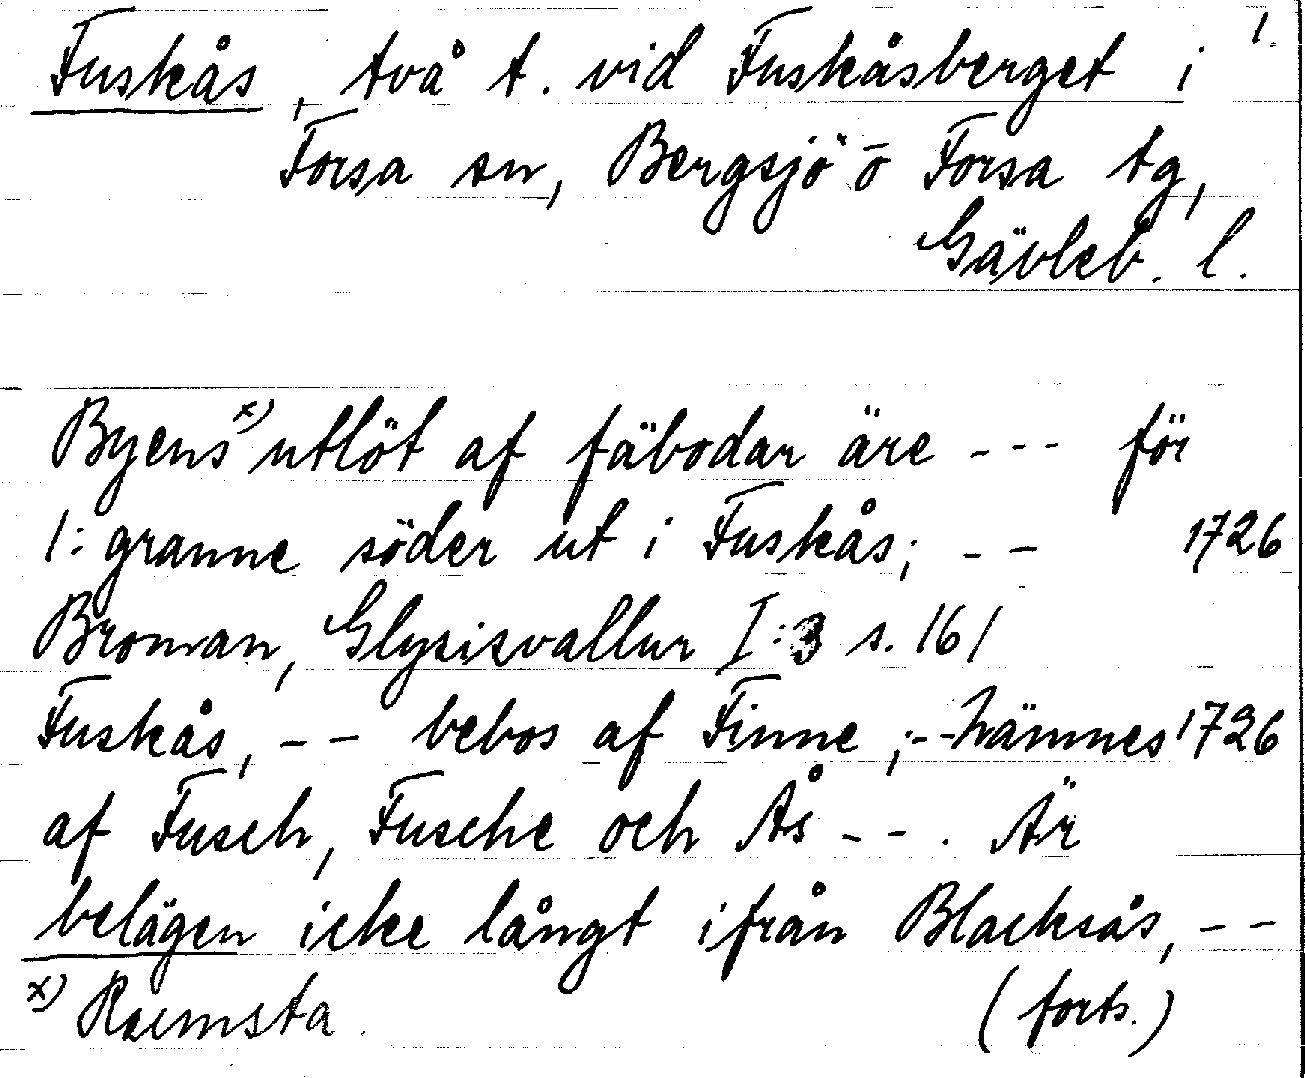 1.
Fuskås, två t. vid Fuskåsberget i
Forsa sn, Bergsjö o Forsa tg,
Gävleb. l.
Byens x) utlöt af fäbodar äre - - - för
1: granne söder ut i Fuskås; - - 1726
Broman, Glysisvallur I:3 s. 161
Fuskås, - - bebos af Finne; - - nämnes 1726
af Fusch, Fusche och Ås - - . Är
belägen icke långt ifrån Blacksås, - -
x) Raemsta. (forts.)